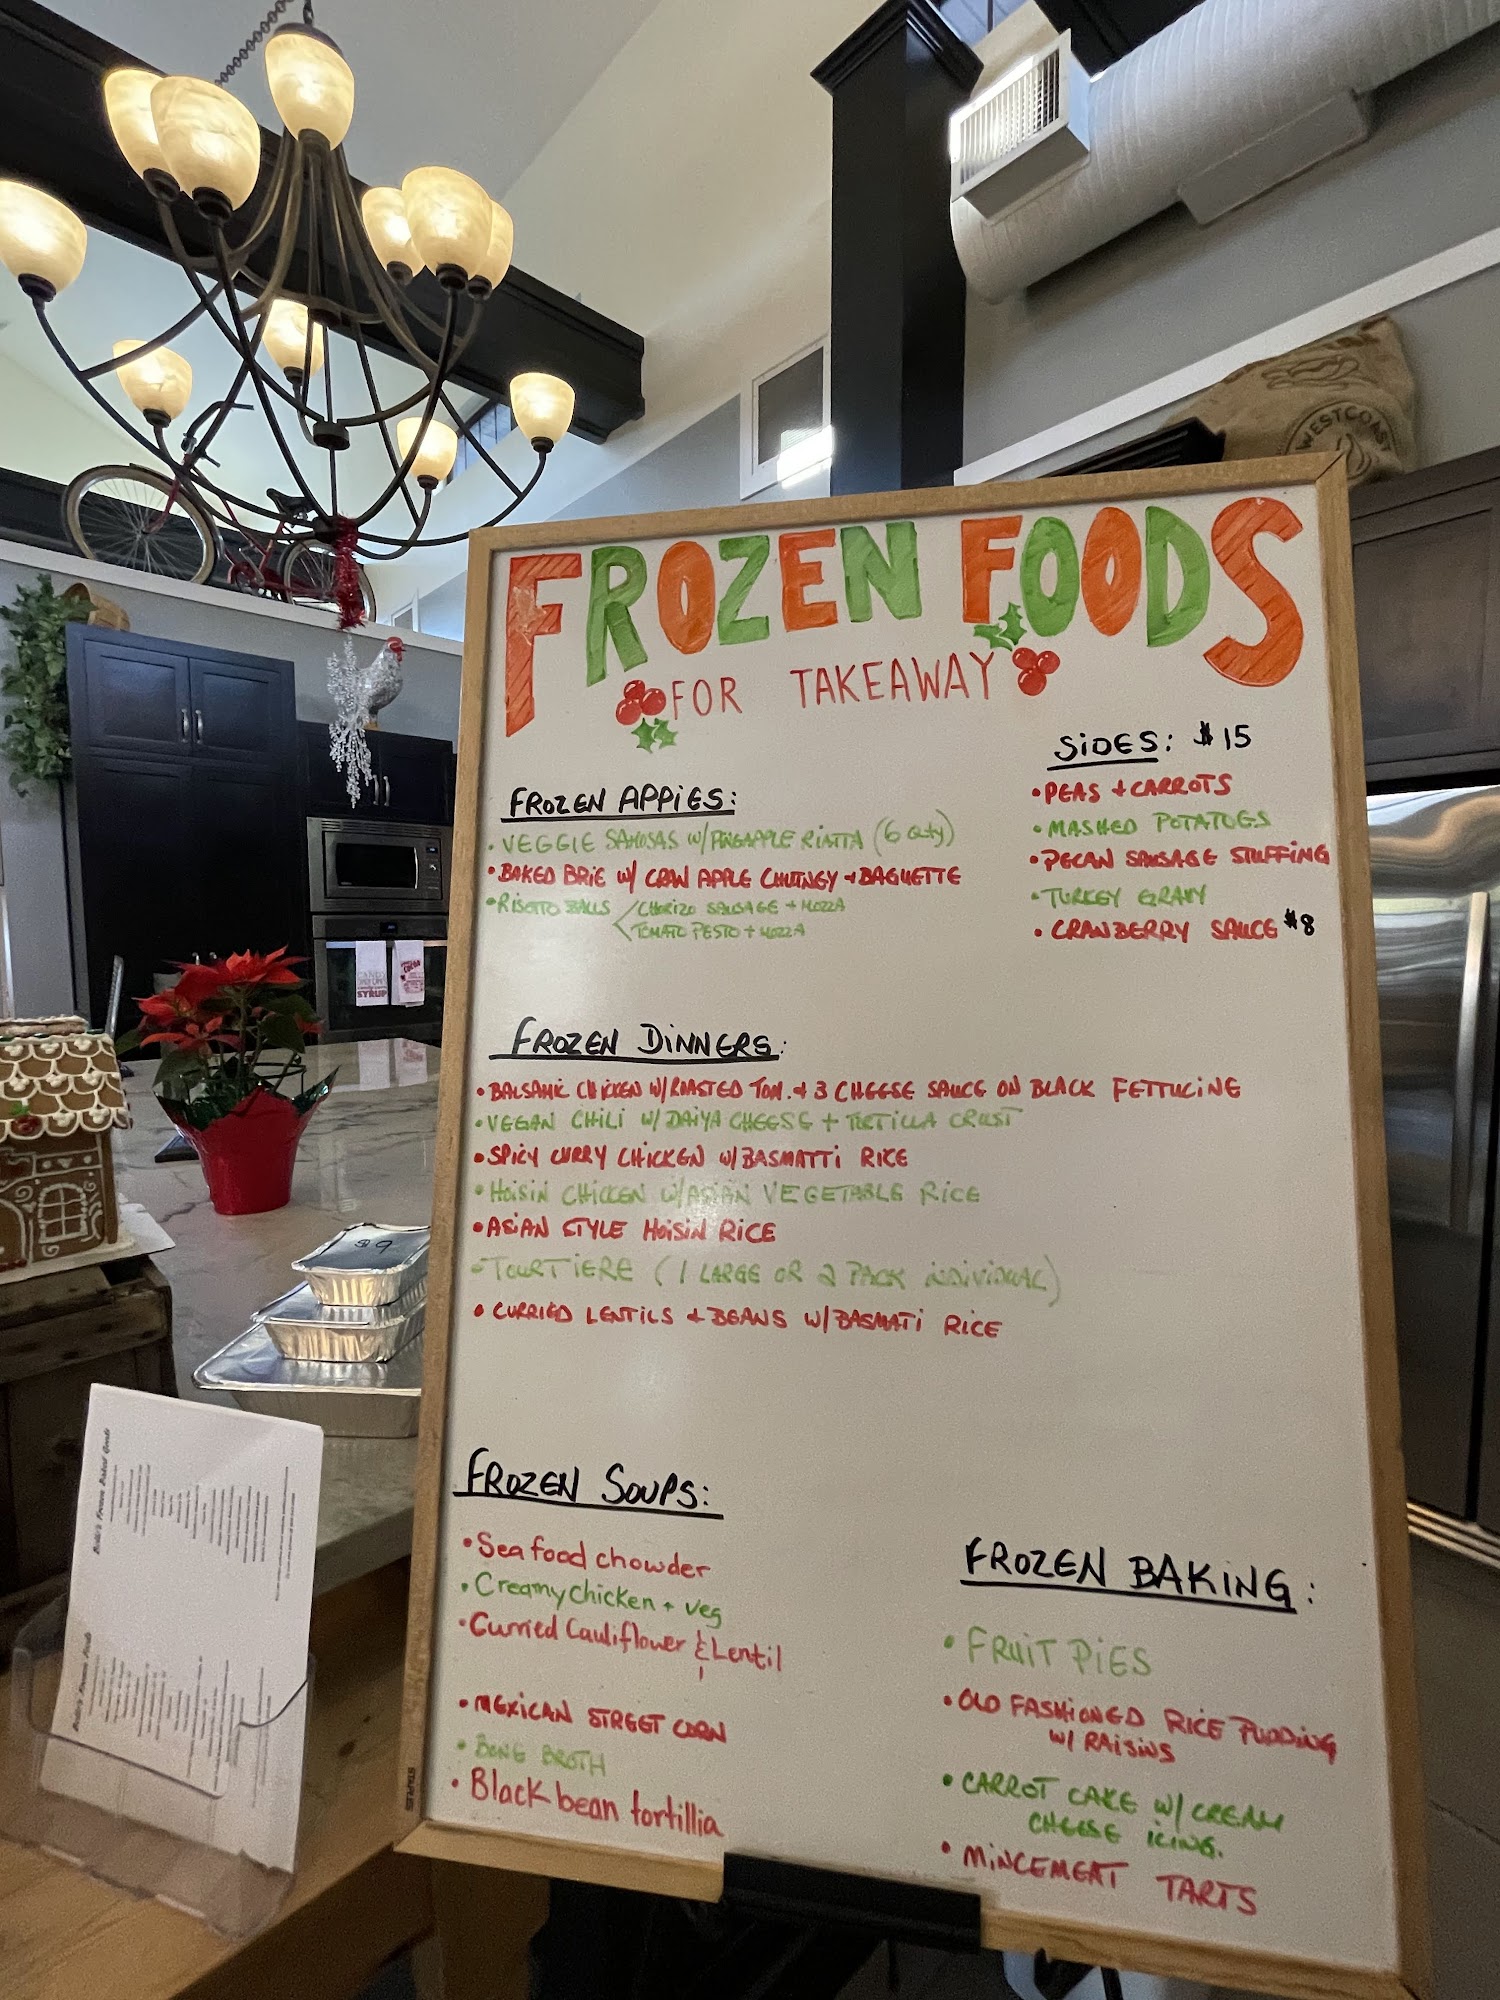 FROZEN FOODS
FOR TAKEAWAY
SIDES: $15
• PEAS + CARROTS
• MASHED POTATOES
• PECAN SAUSAGE STUFFING
• TURKEY GRAVY
• CRANBERRY SAUCE $8
FROZEN APPIES:
• VEGGIE SAMOSAS W/ PINEAPPLE RIATTA (6 Qty)
• BAKED BRIE W/ CRAN APPLE CHUTNEY + BAGUETTE
• RISOTTO BALLS CHORIZO SAUSAGE + MOZZA
TOMATO PESTO + MOZZA
FROZEN DINNERS:
• BALSAMIC CHICKEN W/ ROASTED TOM. & 3 CHEESE SAUCE ON BLACK FETTUCINE
• VEGAN CHILI W/ DAIYA CHEESE + TORTILLA CRUST
• SPICY CURRY CHICKEN W/ BASMATTI RICE
• HOISIN CHICKEN W/ ASIAN VEGETABLE RICE
• ASIAN STYLE HOISIN RICE
• TOURTIERE (1 LARGE OR 2 PACK INDIVIDUAL)
• CURRIED LENTILS + BEANS W/ BASMATI RICE
FROZEN SOUPS:
• Seafood chowder
• Creamy chicken + veg
• Curried Cauliflower & Lentil
• MEXICAN STREET CORN
• BONE BROTH
• Black bean tortillia
FROZEN BAKING:
• FRUIT PIES
• OLD FASHIONED RICE PUDDING
W/ RAISINS
• CARROT CAKE W/ CREAM
CHEESE ICING.
• MINCEMEAT TARTS
STAPLES
WESTCOAST
SYRUP
$9